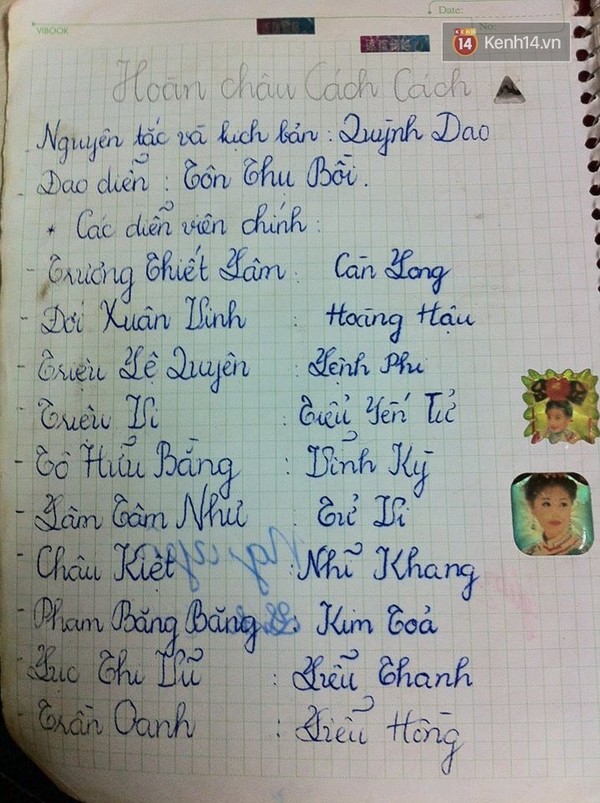 VIBOOK
Date:
No:
14 Kenh14.vn
Hoàn châu Cách Cách
Nguyên tác và kịch bản : Quỳnh Dao
Dao diễn : Tôn Thu Bồi.
* Các diễn viên chính :
- Trương Thiết Lâm : Càn Long
- Đới Xuân Vinh : Hoàng Hậu
- Triệu Lệ Quyên : Lệnh Phi
- Triệu Vi : Tiểu Yến Tử
- Tô Hữu Bằng : Vĩnh Kỳ
- Lâm Tâm Như : Tử Vi
- Châu Kiệt : Nhĩ Khang
- Phạm Băng Băng : Kim Toả
- Lục Thi Vũ : Liễu Thanh
- Trần Oanh : Liễu Hồng